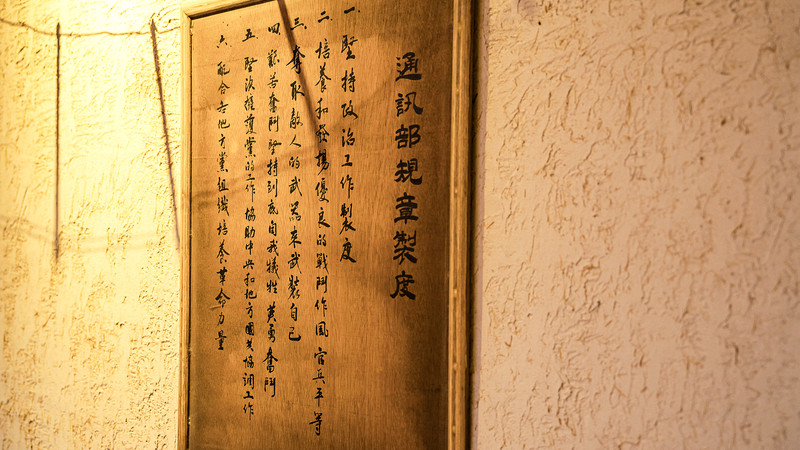 通訊部規章製度
一 堅持政治工作製度
二 培養和發揚優良的戰鬥作風官兵平等
三 奪取敵人的武器來武裝自己
四 艱苦奮鬥堅持到底自我犧牲英勇奮鬥
五 堅決擁護黨的工作協助中央和地方國共協調工作
六 配合各地方黨組織培養革命力量